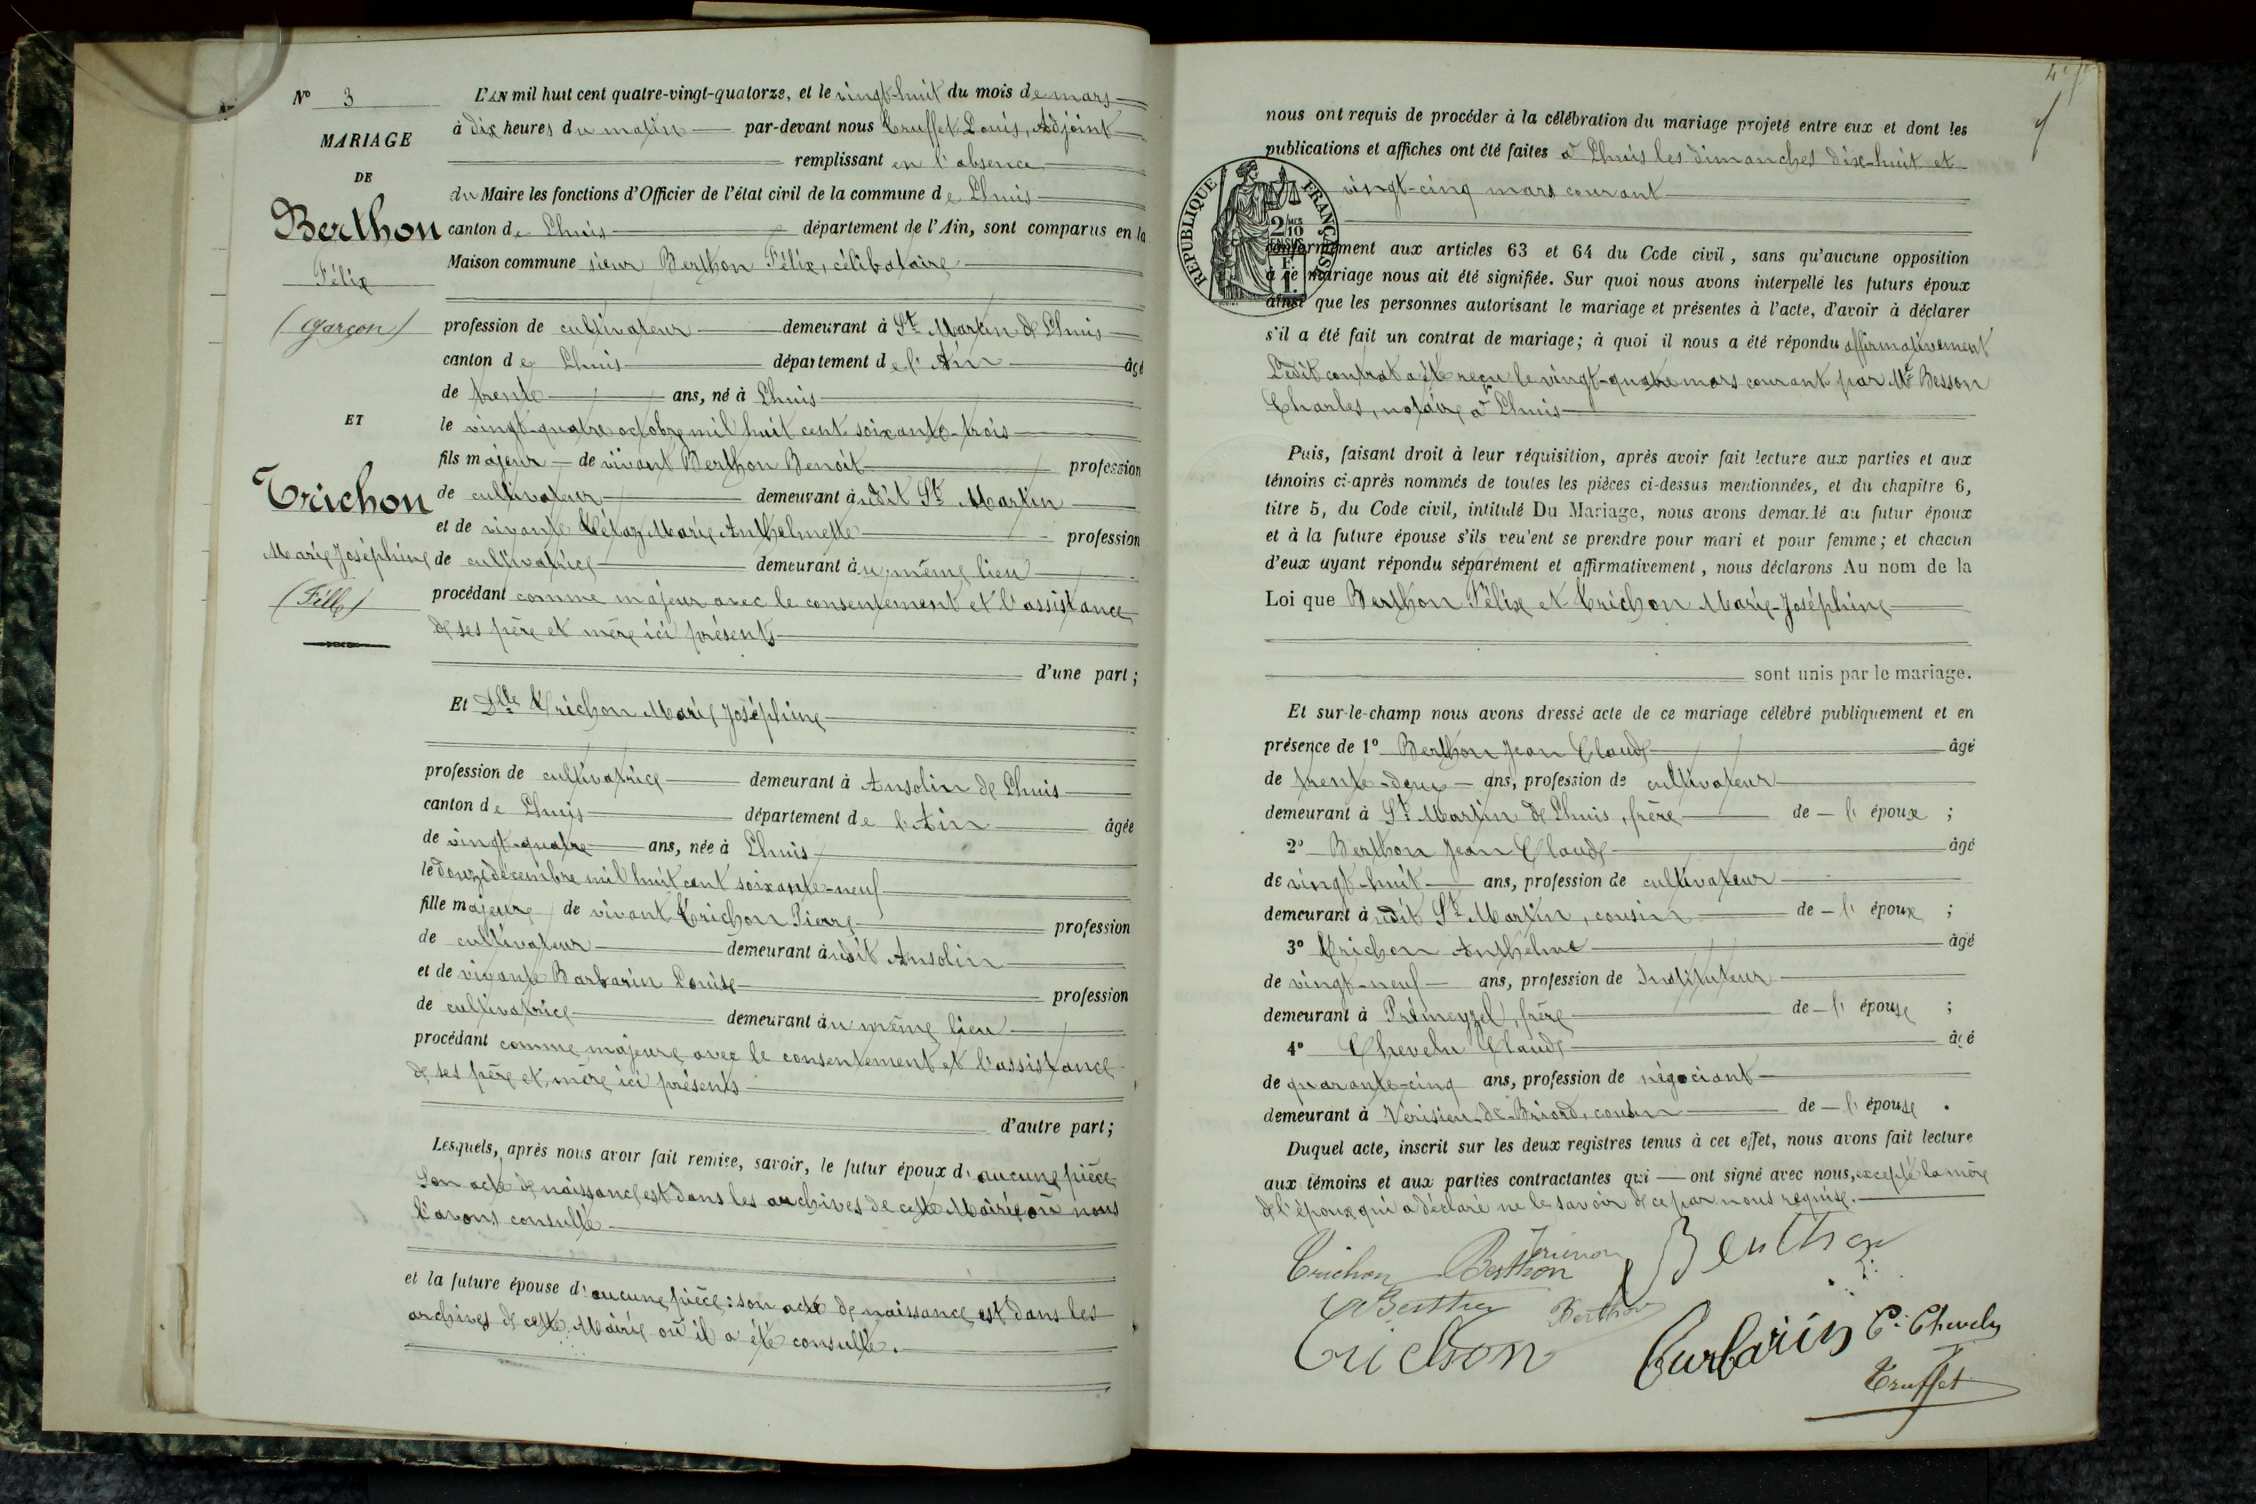 N° 3
MARIAGE
DE
Berthon
Félix
(garçon)
ET
Trichon
Marie Joséphine
(Fille)
L'AN mil huit cent quatre-vingt-quatorze, et le vingt-huit du mois de mars
à dix heures du matin par-devant nous Truffet Louis, Adjoint
remplissant en l'absence
du Maire les fonctions d'Officier de l'état civil de la commune de Lhuis
canton de Lhuis département de l'Ain, sont comparus en la
Maison commune sieur Berthon Félix, célibataire
profession de cultivateur demeurant à St Martin de Lhuis
canton de Lhuis département de l'Ain âgé
de trente ans, né à Lhuis
le vingt-quatre octobre mil huit cent soixante-trois
fils majeur de vivant Berthon Benoit profession
de cultivateur demeurant àudit St Martin
et de vivante Marie Anthelmette profession
de cultivatrice demeurant àu même lieu
procédant comme majeur avec le consentement et l'assistance
de ses père et mère ici présents
d'une part ;
Et Dlle Trichon Marie Joséphine
profession de cultivatrice demeurant à Ansolin de Lhuis
canton de Lhuis département de l'Ain âgée
de vingt-quatre ans, née à Lhuis
le douze décembre mil huit cent soixante-neuf
fille majeure de vivant Trichon Pierre profession
de cultivateur demeurant àudit Ansolin
et de vivante Barbarin Louise profession
de cultivatrice demeurant àu même lieu
procédant comme majeure avec le consentement et l'assistance
de ses père et mère ici présents
d'autre part ;
Lesquels, après nous avoir fait remise, savoir, le futur époux d'aucune pièce
Son acte de naissance est dans les archives de cette Mairie où nous
l'avons consulté
et la future épouse d'aucune pièce : son acte de naissance est dans les
archives de cette Mairie où il a été consulté.
nous ont requis de procéder à la célébration du mariage projeté entre eux et dont les
publications et affiches ont été faites à Lhuis les dimanches dix-huit et
vingt-cinq mars courant
RÉPUBLIQUE FRANÇAISE
2/10 EN SUS
1 F.
conformément aux articles 63 et 64 du Code civil, sans qu'aucune opposition
à ce mariage nous ait été signifiée. Sur quoi nous avons interpellé les futurs époux
ainsi que les personnes autorisant le mariage et présentes à l'acte, d'avoir à déclarer
s'il a été fait un contrat de mariage ; à quoi il nous a été répondu affirmativement
Ledit contrat a été reçu le vingt-quatre mars courant par Me Besson
Charles, notaire à Lhuis
Puis, faisant droit à leur réquisition, après avoir fait lecture aux parties et aux
témoins ci-après nommés de toutes les pièces ci-dessus mentionnées, et du chapitre 6,
titre 5, du Code civil, intitulé Du Mariage, nous avons demandé au futur époux
et à la future épouse s'ils veulent se prendre pour mari et pour femme ; et chacun
d'eux ayant répondu séparément et affirmativement, nous déclarons Au nom de la
Loi que Berthon Félix et Trichon Marie-Joséphine
sont unis par le mariage.
Et sur-le-champ nous avons dressé acte de ce mariage célébré publiquement et en
présence de 1° Berthon Jean Claude âgé
de trente-deux ans, profession de cultivateur
demeurant à St Martin de Lhuis, frère de l'époux ;
2° Berthon Jean Claude âgé
de vingt-huit ans, profession de cultivateur
demeurant àudit St Martin, cousin de l'époux ;
3° Trichon Anthelme âgé
de vingt-neuf ans, profession de Instituteur
demeurant à Prémeyzel, frère de l'épouse ;
4° Chevelu Claude âgé
de quarante-cinq ans, profession de négociant
demeurant à Vérisieu de Briord, cousin de l'épouse.
Duquel acte, inscrit sur les deux registres tenus à cet effet, nous avons fait lecture
aux témoins et aux parties contractantes qui ont signé avec nous, excepté la mère
de l'époux qui a déclaré ne le savoir de ce par nous requise.
Trichon Berthon Berthon
Berthon
Trichon Barbarin C. Chevelu
Truffet